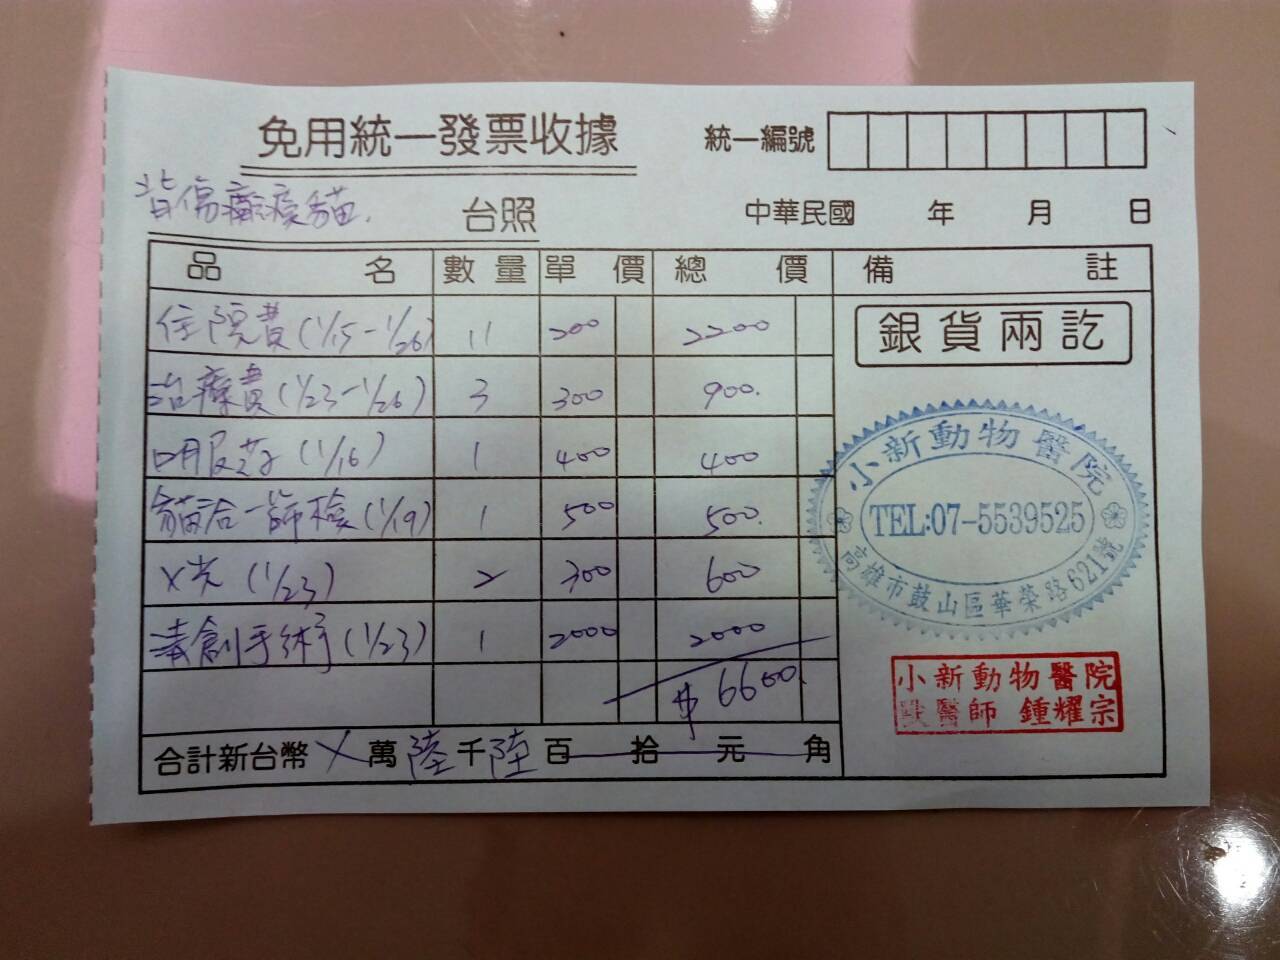 免用統一發票收據 統一編號
背傷癱瘓貓. 台照 中華民國 年 月 日
品名 數量 單價 總價 備註
住院費(1/15-1/26) 11 200 2200
治療費(1/23-1/26) 3 300 900.
口服藥(1/16) 1 400 400
貓 一篩檢(1/19) 1 500 500.
X光(1/23) 2 300 600
清創手術(1/23) 1 2000 2000
$6600.
合計新台幣X萬陸千陸百拾元角
銀貨兩訖
小新動物醫院
TEL:07-5539525
高雄市鼓山區華榮路621號
小新動物醫院
獸醫師 鍾耀宗